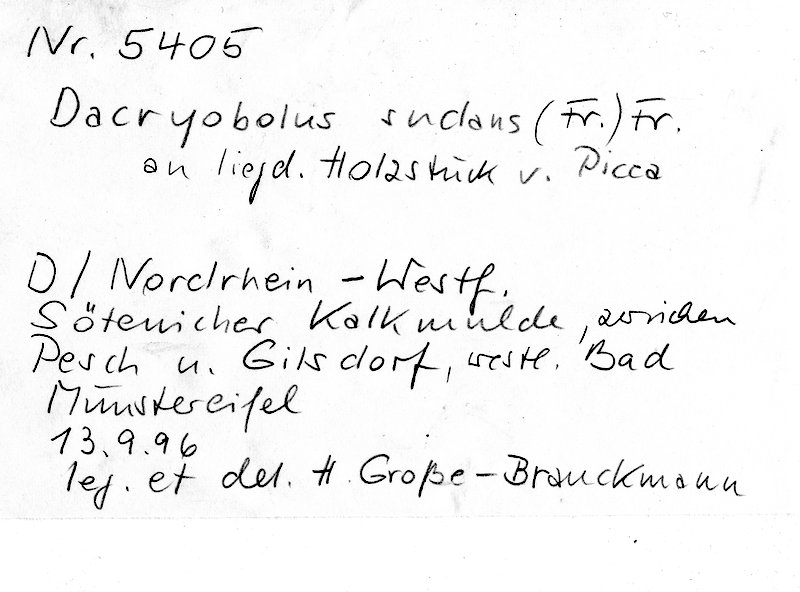 Nr. 5405
Dacryobolus sudans (Fr.) Fr.
an liegd. Holzstück v. Picea
D / Nordrhein-Westf.
Sötenicher Kalkmulde, zwischen
Pesch u. Gilsdorf, westl. Bad
Münstereifel
13.9.96
leg. et det. H. Große-Brauckmann